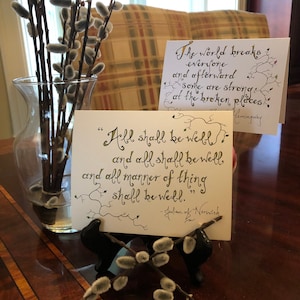 The world breaks
everyone
and afterward
some are strong
at the broken places.
"All shall be well
and all shall be well
and all manner of thing
shall be well."
Julian of Norwich